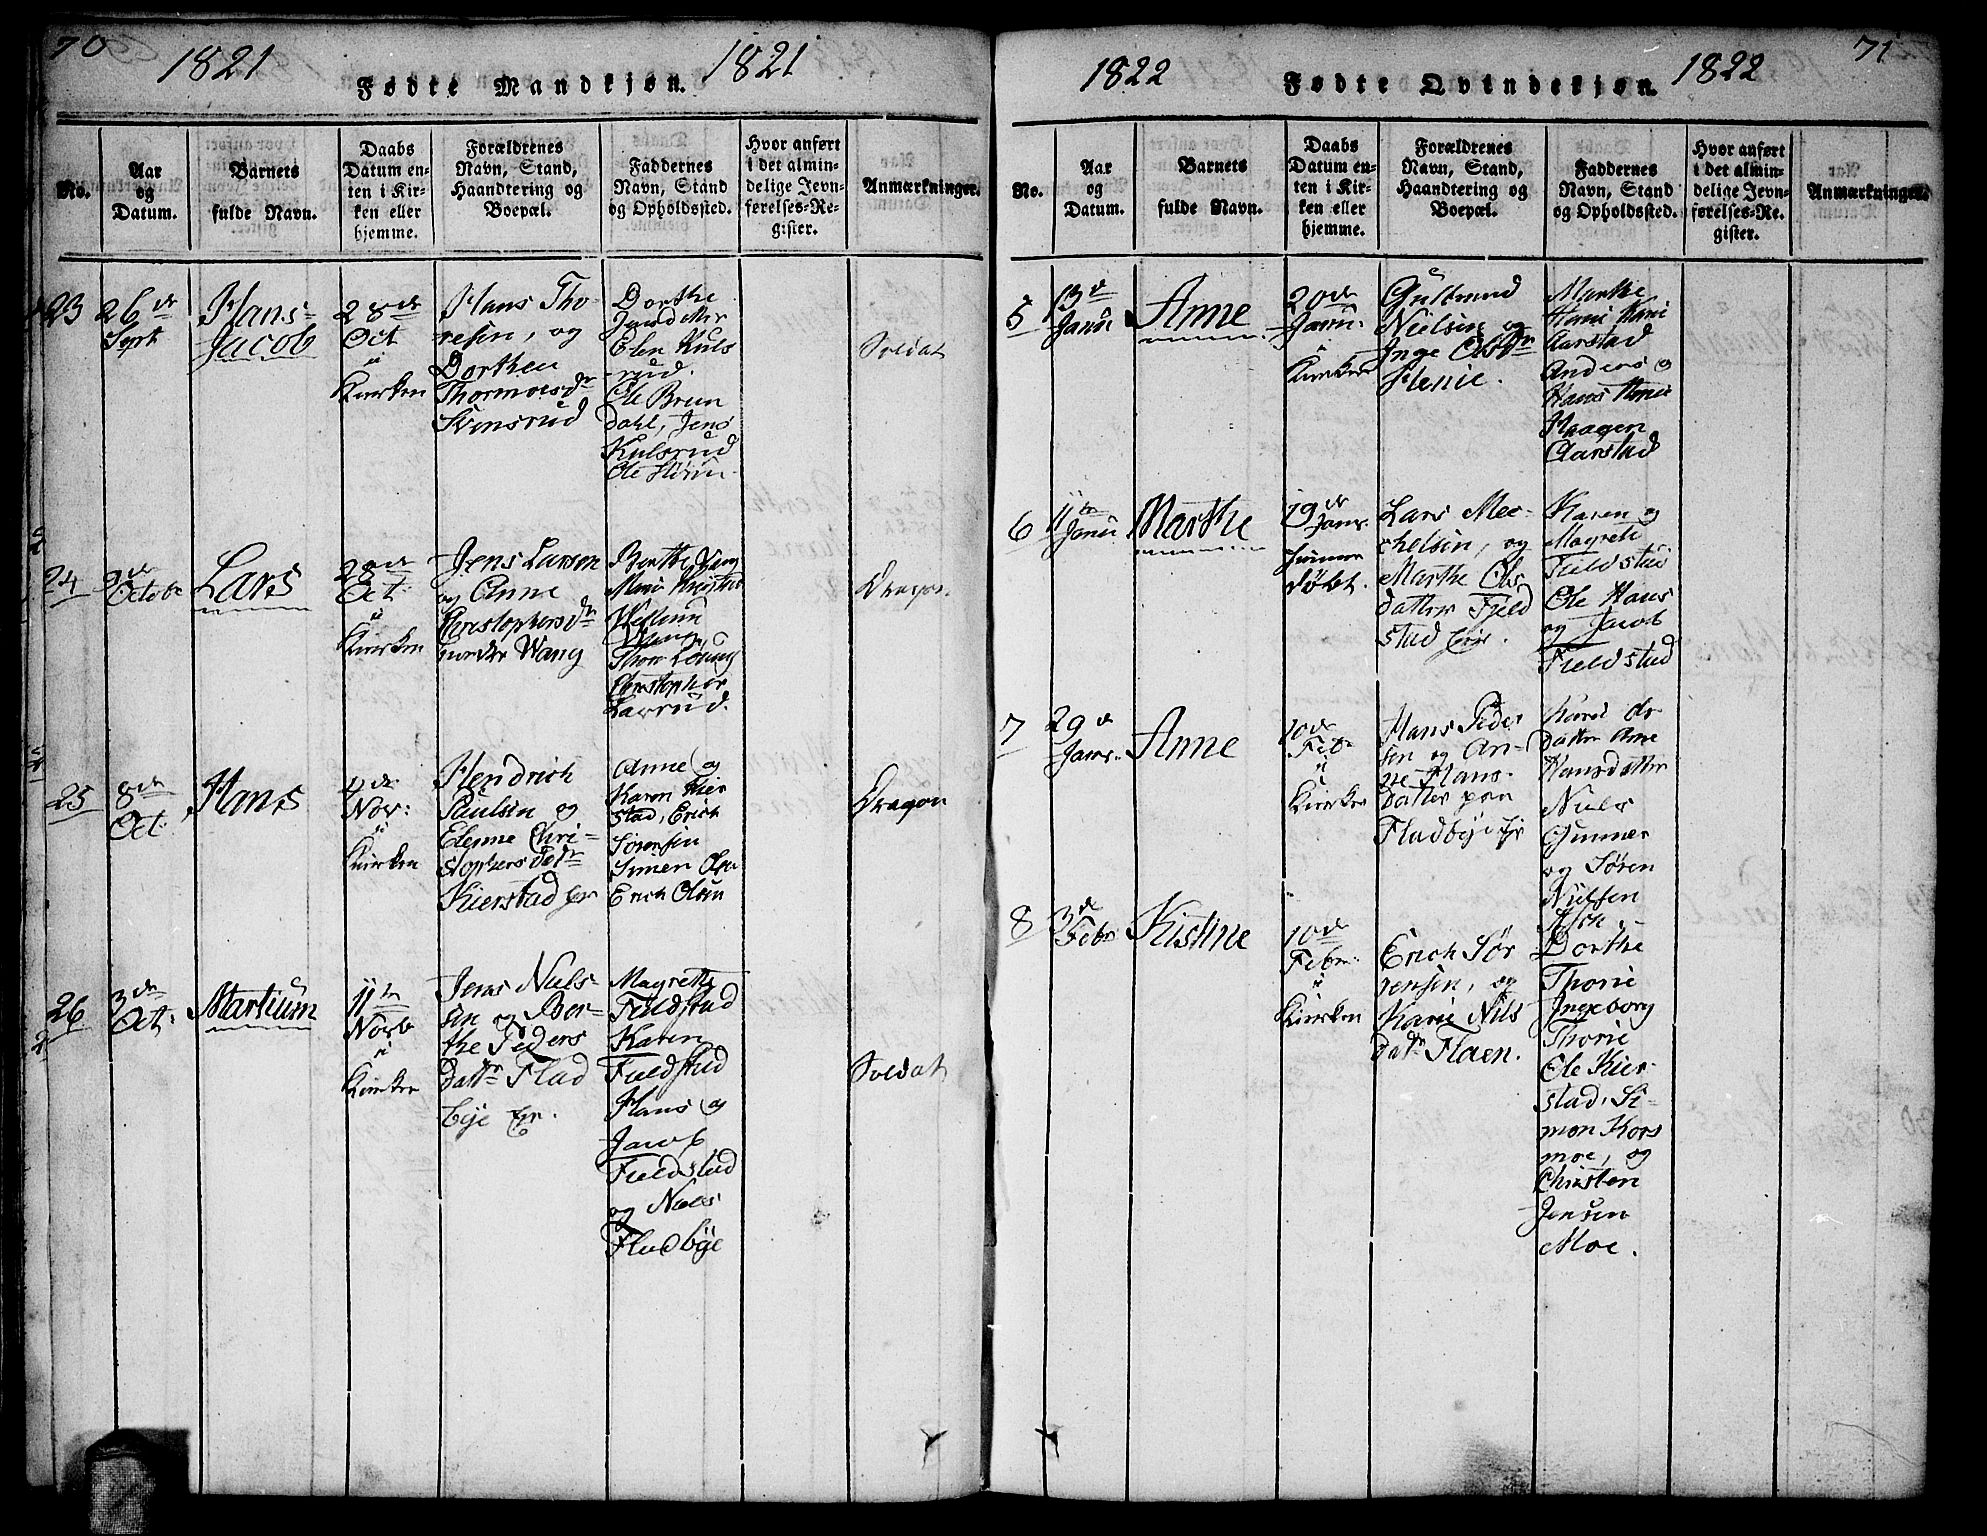 70
1821
Fødte Mandkjøn.
1821
No.
Aar
og
Datum.
Barnets
fulde Navn.
Daabs
Datum en-
ten i Kir-
ken eller
hjemme.
Forældrenes
Navn, Stand,
Haandtering og
Boepæl.
Faddernes
Navn, Stand
og Opholdssted.
Hvor anført
i det almin-
delige Jevn-
førelses-Re-
gister.
Anmærkninger.
23
26de
Sept
Hans-
Jacob
28de
Oct
i
Kierken
Hans Tho-
resen, og
Dorthea
Svensrud
Dorthe
Elen Kuls
-rud.
Ole Brun
dahl, Jens
Kulsrud
Ole
Soldat
24
2de
Octob
Lars
28de
Oct
i
Kierken
Jens Larsen
og Anne
Christophersdr
Wang
Berthe
Christopher
Laverud.
Dragon
25
8de
Oct:
Hans
4de
Nov:
i
Kierken
Hendrich
Paulsen og
Elenne Chri-
stophersdatr
Kierstad
Anne og
Karen Kier
stad, Erich
Sørensen
Simen
Erich Olsen
Dragon
26
3de
Oct.
Martium
11te
Novb
i
Kierken
Jens Niels-
sen og Ber-
the Peders
dattr Flad
bye
Magrethe
Fieldstad
Karen
Fieldstad
Hans og
Jacob
Fieldstad
og Niels
Fladbye
Soldat
71
1822
Fødte Qvindekjøn.
1822
No.
Aar
og
Datum.
Barnets
fulde Navn.
Daabs
Datum en-
ten i Kir-
ken eller
hjemme.
Forældrenes
Navn, Stand,
Haandtering og
Boepæl.
Faddernes
Navn, Stand
og Opholdssted.
Hvor anført
i det almin-
delige Jevn-
førelses-Re-
gister.
Anmærkninger.
5
13de
Janu
Anne
20de
Janu.
i
Kierken
Gulbrand
Nielsen og
Inge Olsdr
Henie.
Marthe
Aarstad
Anders og
Hans Henie
Haagen
Aarstad
6
11te
Janu
Marthe
19de
Janr.
hiemme
døbt.
Lars Mec-
chelsen, og
Marthe Ols
datter Fjeld
stad
Karen og
Magrete
Fieldstad
Ole Hans
og Jacob
Fieldstad
7
29de
Janr.
Anne
10de
Feb
i
Kierken
Hans Peder
sen og An-
ne Hans-
datter paa
Fladbye
datter Anne
Hansdatter
Niels
Gunner
og Søren
Nielsen
8
3de
Febr
Kistine
10de
Febr.
i
Kierken
Erich Sør
rensen, og
Karie Nils
datr Flaen.
Dorthe
Thorie
Ingeborg
Thorie
Ole Kier-
stad, Si-
mon Kors
moe, og
Christen
Jensen
Moe.